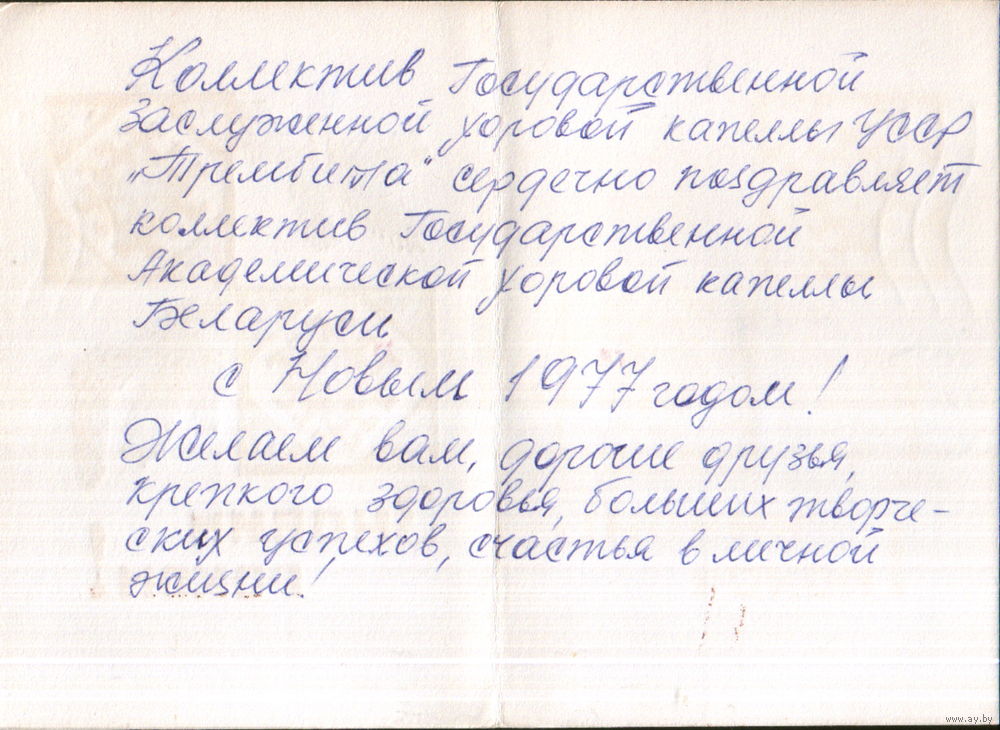 Коллектив Государственной
Заслуженной хоровой капеллы УССР
„Трембита“ сердечно поздравляет
коллектив Государственной
Академической хоровой капеллы
Беларуси
с Новым 1977 годом!
Желаем вам, дорогие друзья,
крепкого здоровья, больших творче-
ских успехов, счастья в личной
жизни!
www.ay.by